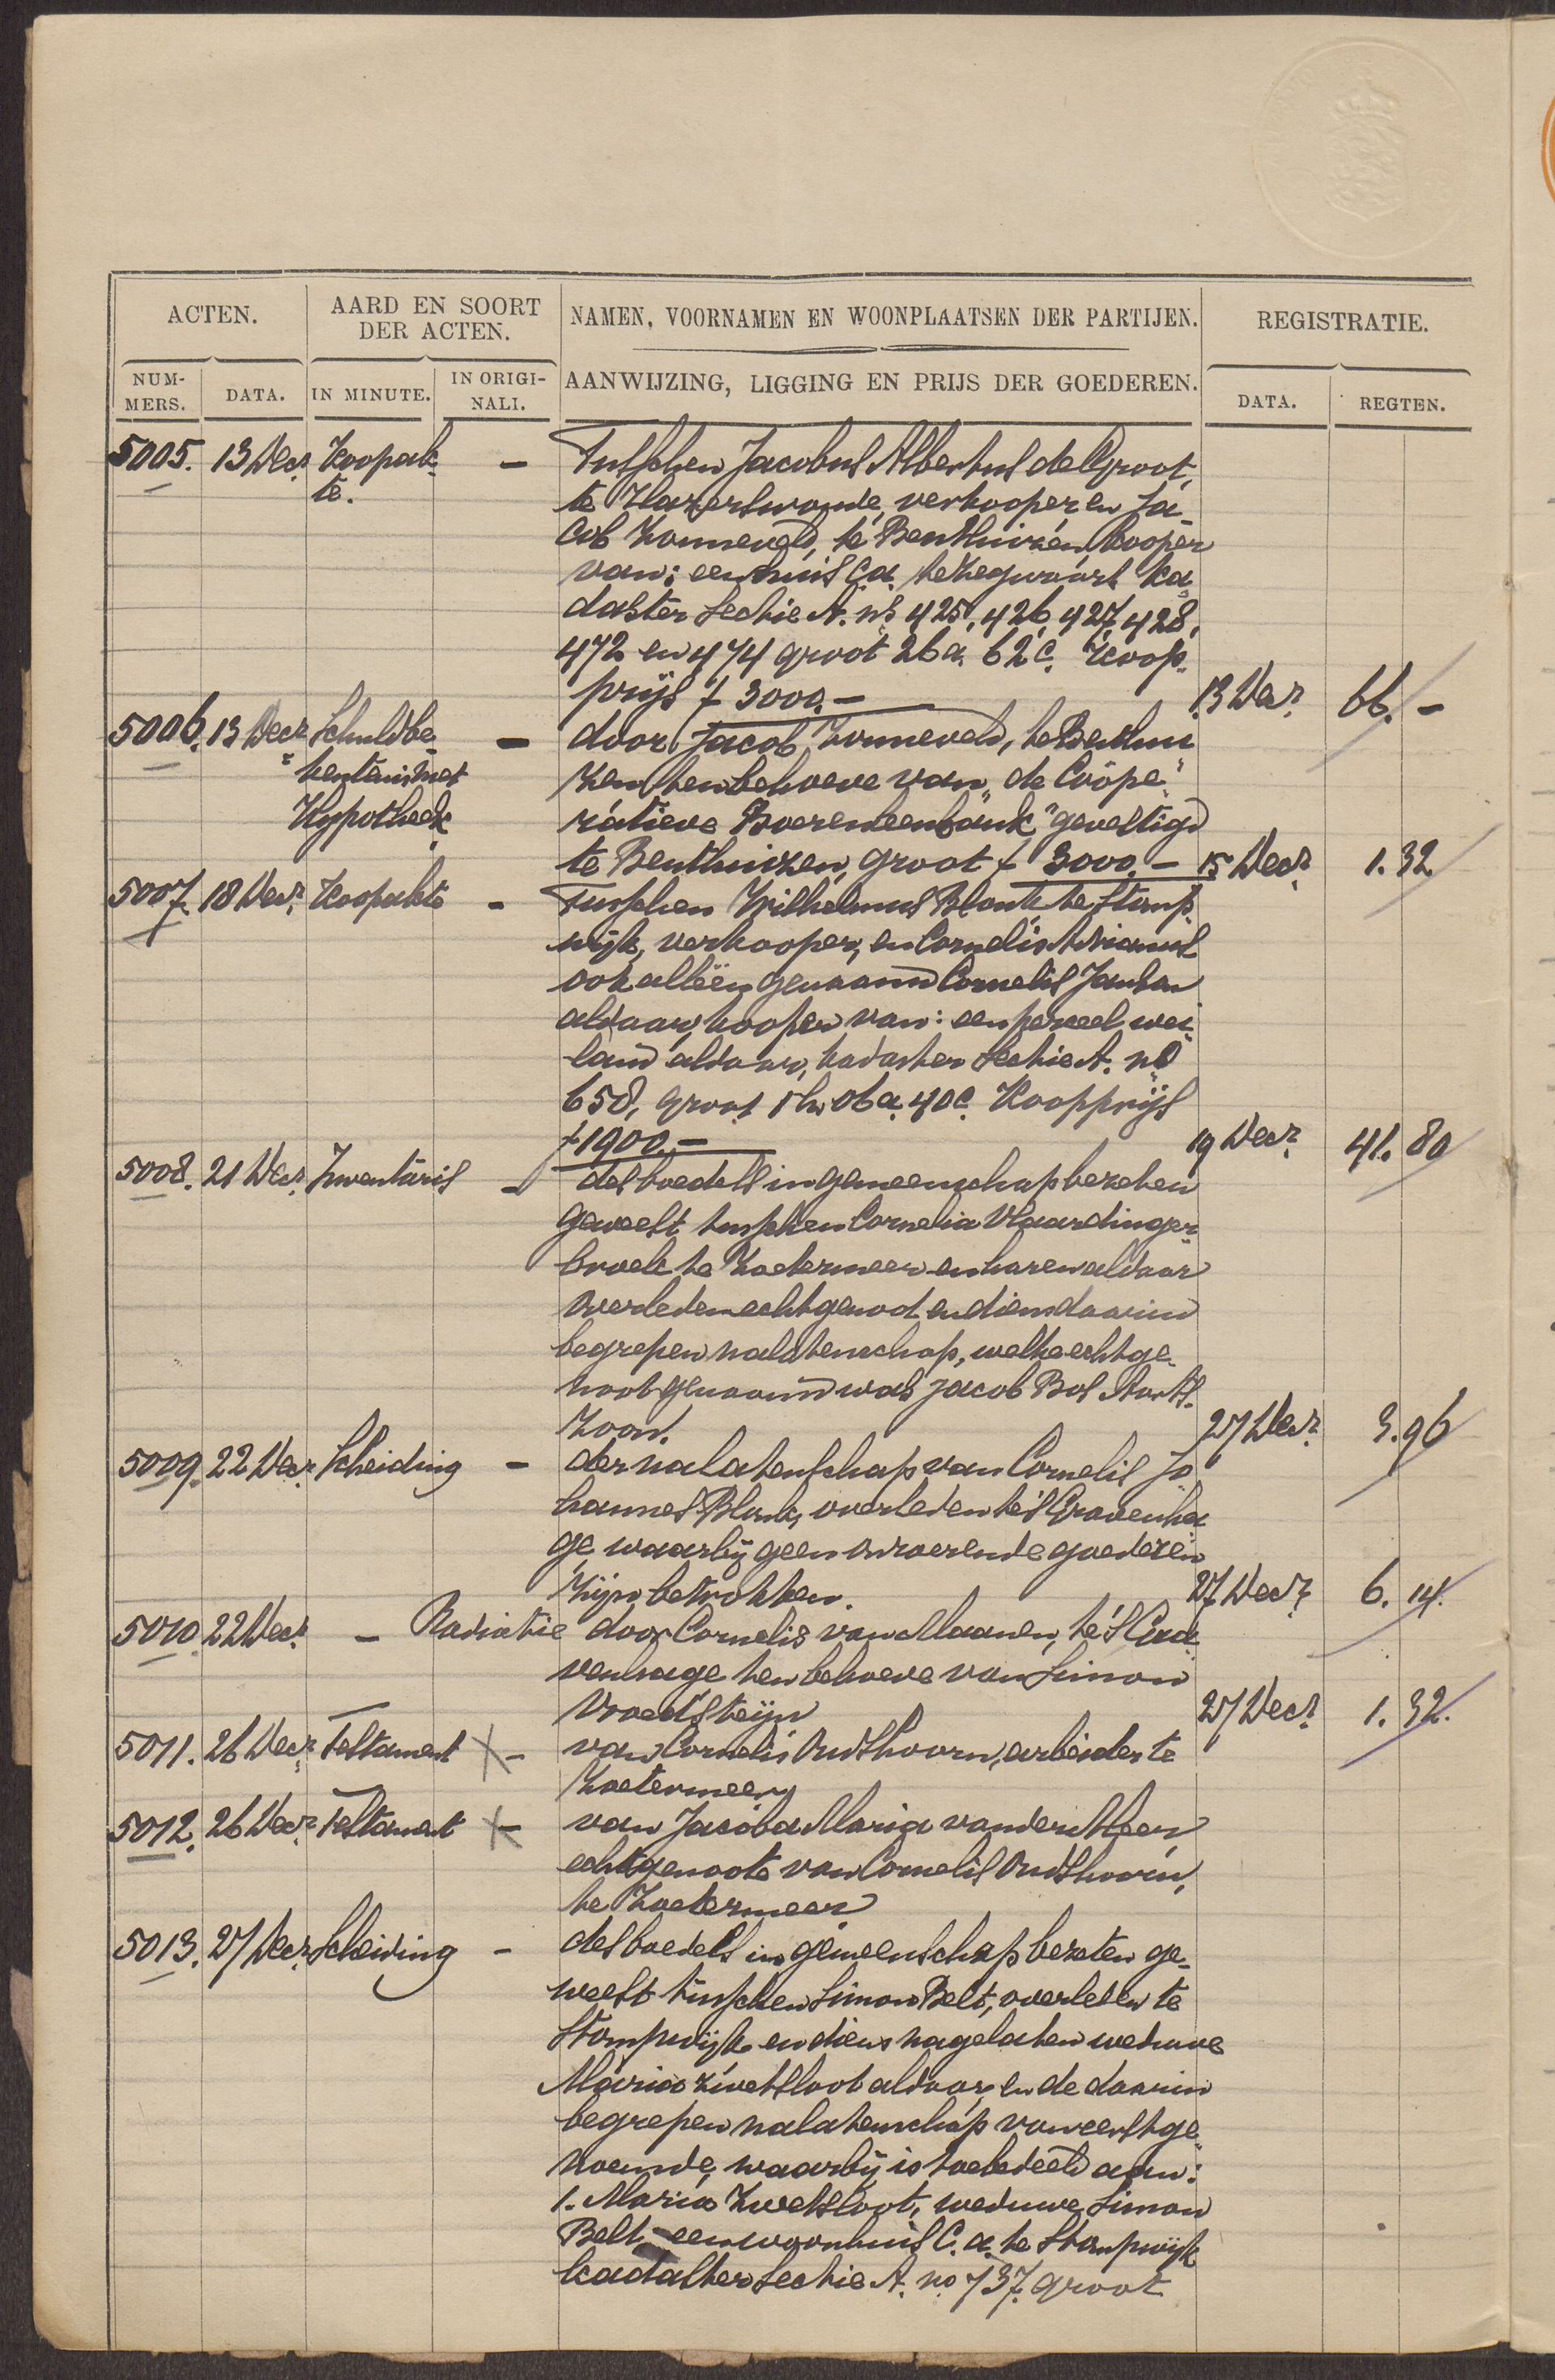 ACTEN. AARD EN SOORT DER ACTEN. NAMEN, VOORNAMEN EN WOONPLAATSEN DER PARTIJEN. REGISTRATIE.
NUM-MERS. DATA. IN MINUTE. IN ORIGI-NALI. AANWIJZING, LIGGING EN PRIJS DER GOEDEREN. DATA. REGTEN.
5005. 13 Decr. Koopak- — Tusschen Jacobus Albertus de Groot,
te. te Hazerswoude, verkooper en Ja-
cob Zonneveld, te Benthuizen kooper
van: een huis c.a. te Zegwaart ka-
daster Sectie A. nos 425, 426, 427, 428,
472 en 474 groot 26 a. 62 c. Koop-
prijs f 3000.— 13 Decr. 66.—
5006. 13 Decr. Schuldbe- — door Jacob Zonneveld, te Benthui-
kentenis met zen ten behoeve van "de Coöpe-
Hypotheek ratieve Boerenleenbank" gevestigd
te Benthuizen, groot f 3000.— 15 Decr. 1.32
5007. 18 Decr. Koopakte — Tusschen Wilhelmus Blonk te Stomp-
wijk, verkooper, en Cornelis Adrianus
ook alleen genaamd Cornelis Janson
aldaar, kooper van: een perceel wei-
land aldaar, kadaster Sectie A. no
658, groot 1 h. 06 a. 40 c. Koopprijs
f 1900.— 19 Decr. 41.80
5008. 21 Decr. Inventaris — des boedels in gemeenschap bezeten
geweest tusschen Cornelia Vlaardinger-
broek te Zoetermeer en haren aldaar
overleden echtgenoot en diens daarin
begrepen nalatenschap, welke echtge-
noot genaamd was Jacob Bos
Zoon. 27 Decr. 3.96
5009. 22 Decr. Scheiding — der nalatenschap van Cornelis Jo-
hannes Blonk, overleden te 's Gravenha-
ge waarbij geen onroerende goederen
zijn betrokken. 27 Decr. 6.14.
5010. 22 Decr. — Radiatie door Cornelis van Maanen, te 's Gra-
venhage ten behoeve van Simon
Vroedsteijn 27 Decr. 1.32.
5011. 26 Decr. Testament — van Cornelis Oudshoorn, arbeider te
Zoetermeer
5012. 26 Decr. Testament — van Jacoba Maria van der Meer,
echtgenoote van Cornelis Oudshoorn,
te Zoetermeer
5013. 27 Decr. Scheiding — des boedels in gemeenschap bezeten ge-
weest tusschen Simon Belt, overleden te
Stompwijk en diens nagelaten weduwe
Maria Zwetsloot aldaar, en de daarin
begrepen nalatenschap van eerstge-
noemde, waarbij is toebedeeld aan:
1. Maria Zwetsloot, weduwe Simon
Belt, een woonhuis c.a. te Stompwijk
kadaster Sectie A. no 737. groot